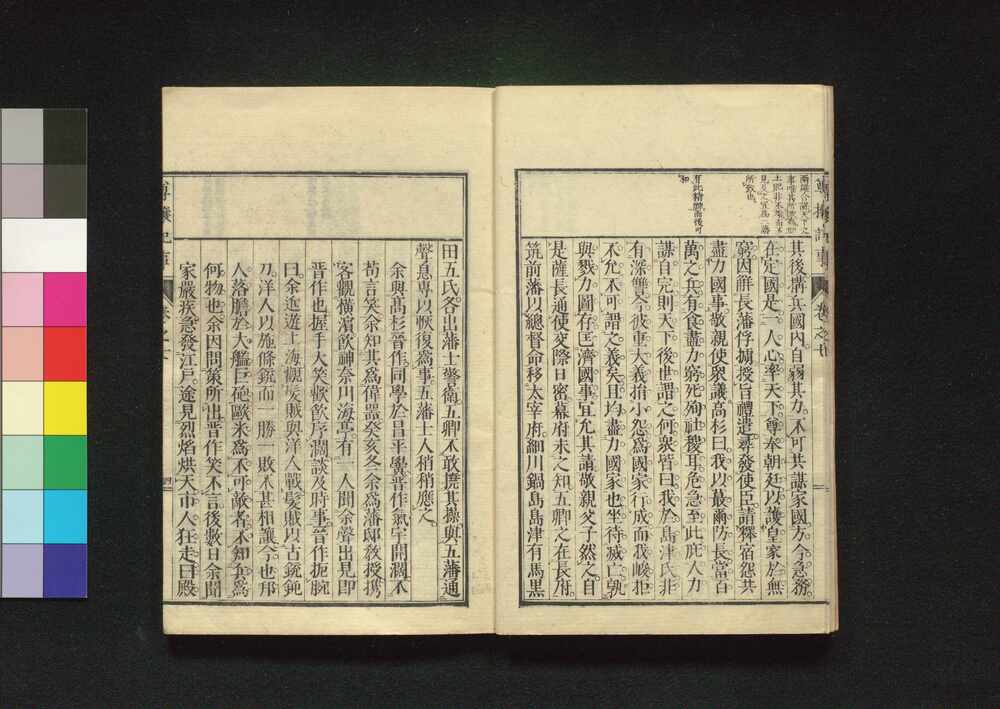 其後搆兵國內自弱其力不可共謀家國方今急務
在定國是一人心率天下尊奉朝廷以護皇家於無
窮因辭長藩俘擄授旨禮遣尋發使臣請釋宿怨共
盡力國事敬親使衆議高杉曰我以最爾防長當百
萬之兵有食盡力窮死殉社稷耳危急至此庶人力
謀自定則天下後世謂之何衆皆曰我於島津氏非
有深讐今彼重大義捐小怨爲國家行成而我峻拒
不允不可謂之義矣且均盡力國家也坐待滅亡孰
與戮力圖存匡濟國事宜允其講敬親父子然之自
是薩長通使交際日密幕府未之知五卿之在長府
筑前藩以總督命移太宰府細川鍋島島津有馬黑
有此精神而後可
和
尊攘紀事
田五氏各出藩士警衛五卿不敢撓其操與五藩通
聲息専以恢復爲事五藩士人稍稍應之
余與髙杉晉作同學於昌平黌晉作氣宇開濶不
苟言笑余知其爲偉器癸亥冬余爲藩邸敎授携
客觀橫濱飲神奈川海亭有一人聞余聲出見卽
晉作也握手大笑歡飲序濶談及時事晉作扼腕
曰余近遊上海觀髮賊與洋人戰髮賊以古銃鈍
刀洋人以施條銃而一勝一敗不甚相讓今也邦
人落膽於大艦巨砲歐米爲不可敵者不知兵爲
何物也余因問策所出晉作笑不言後數日余聞
家嚴疾急發江戸途見烈焰烘天市人狂走曰殿